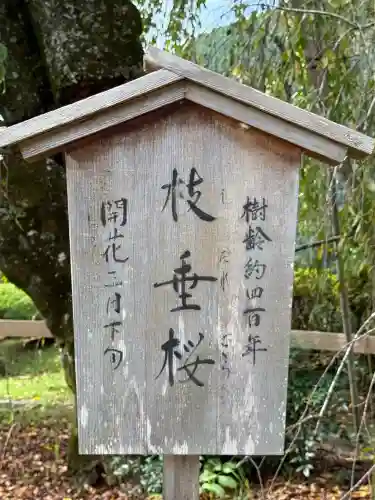 樹齢約四百年
しだれざくら
枝垂桜
開花三月下旬